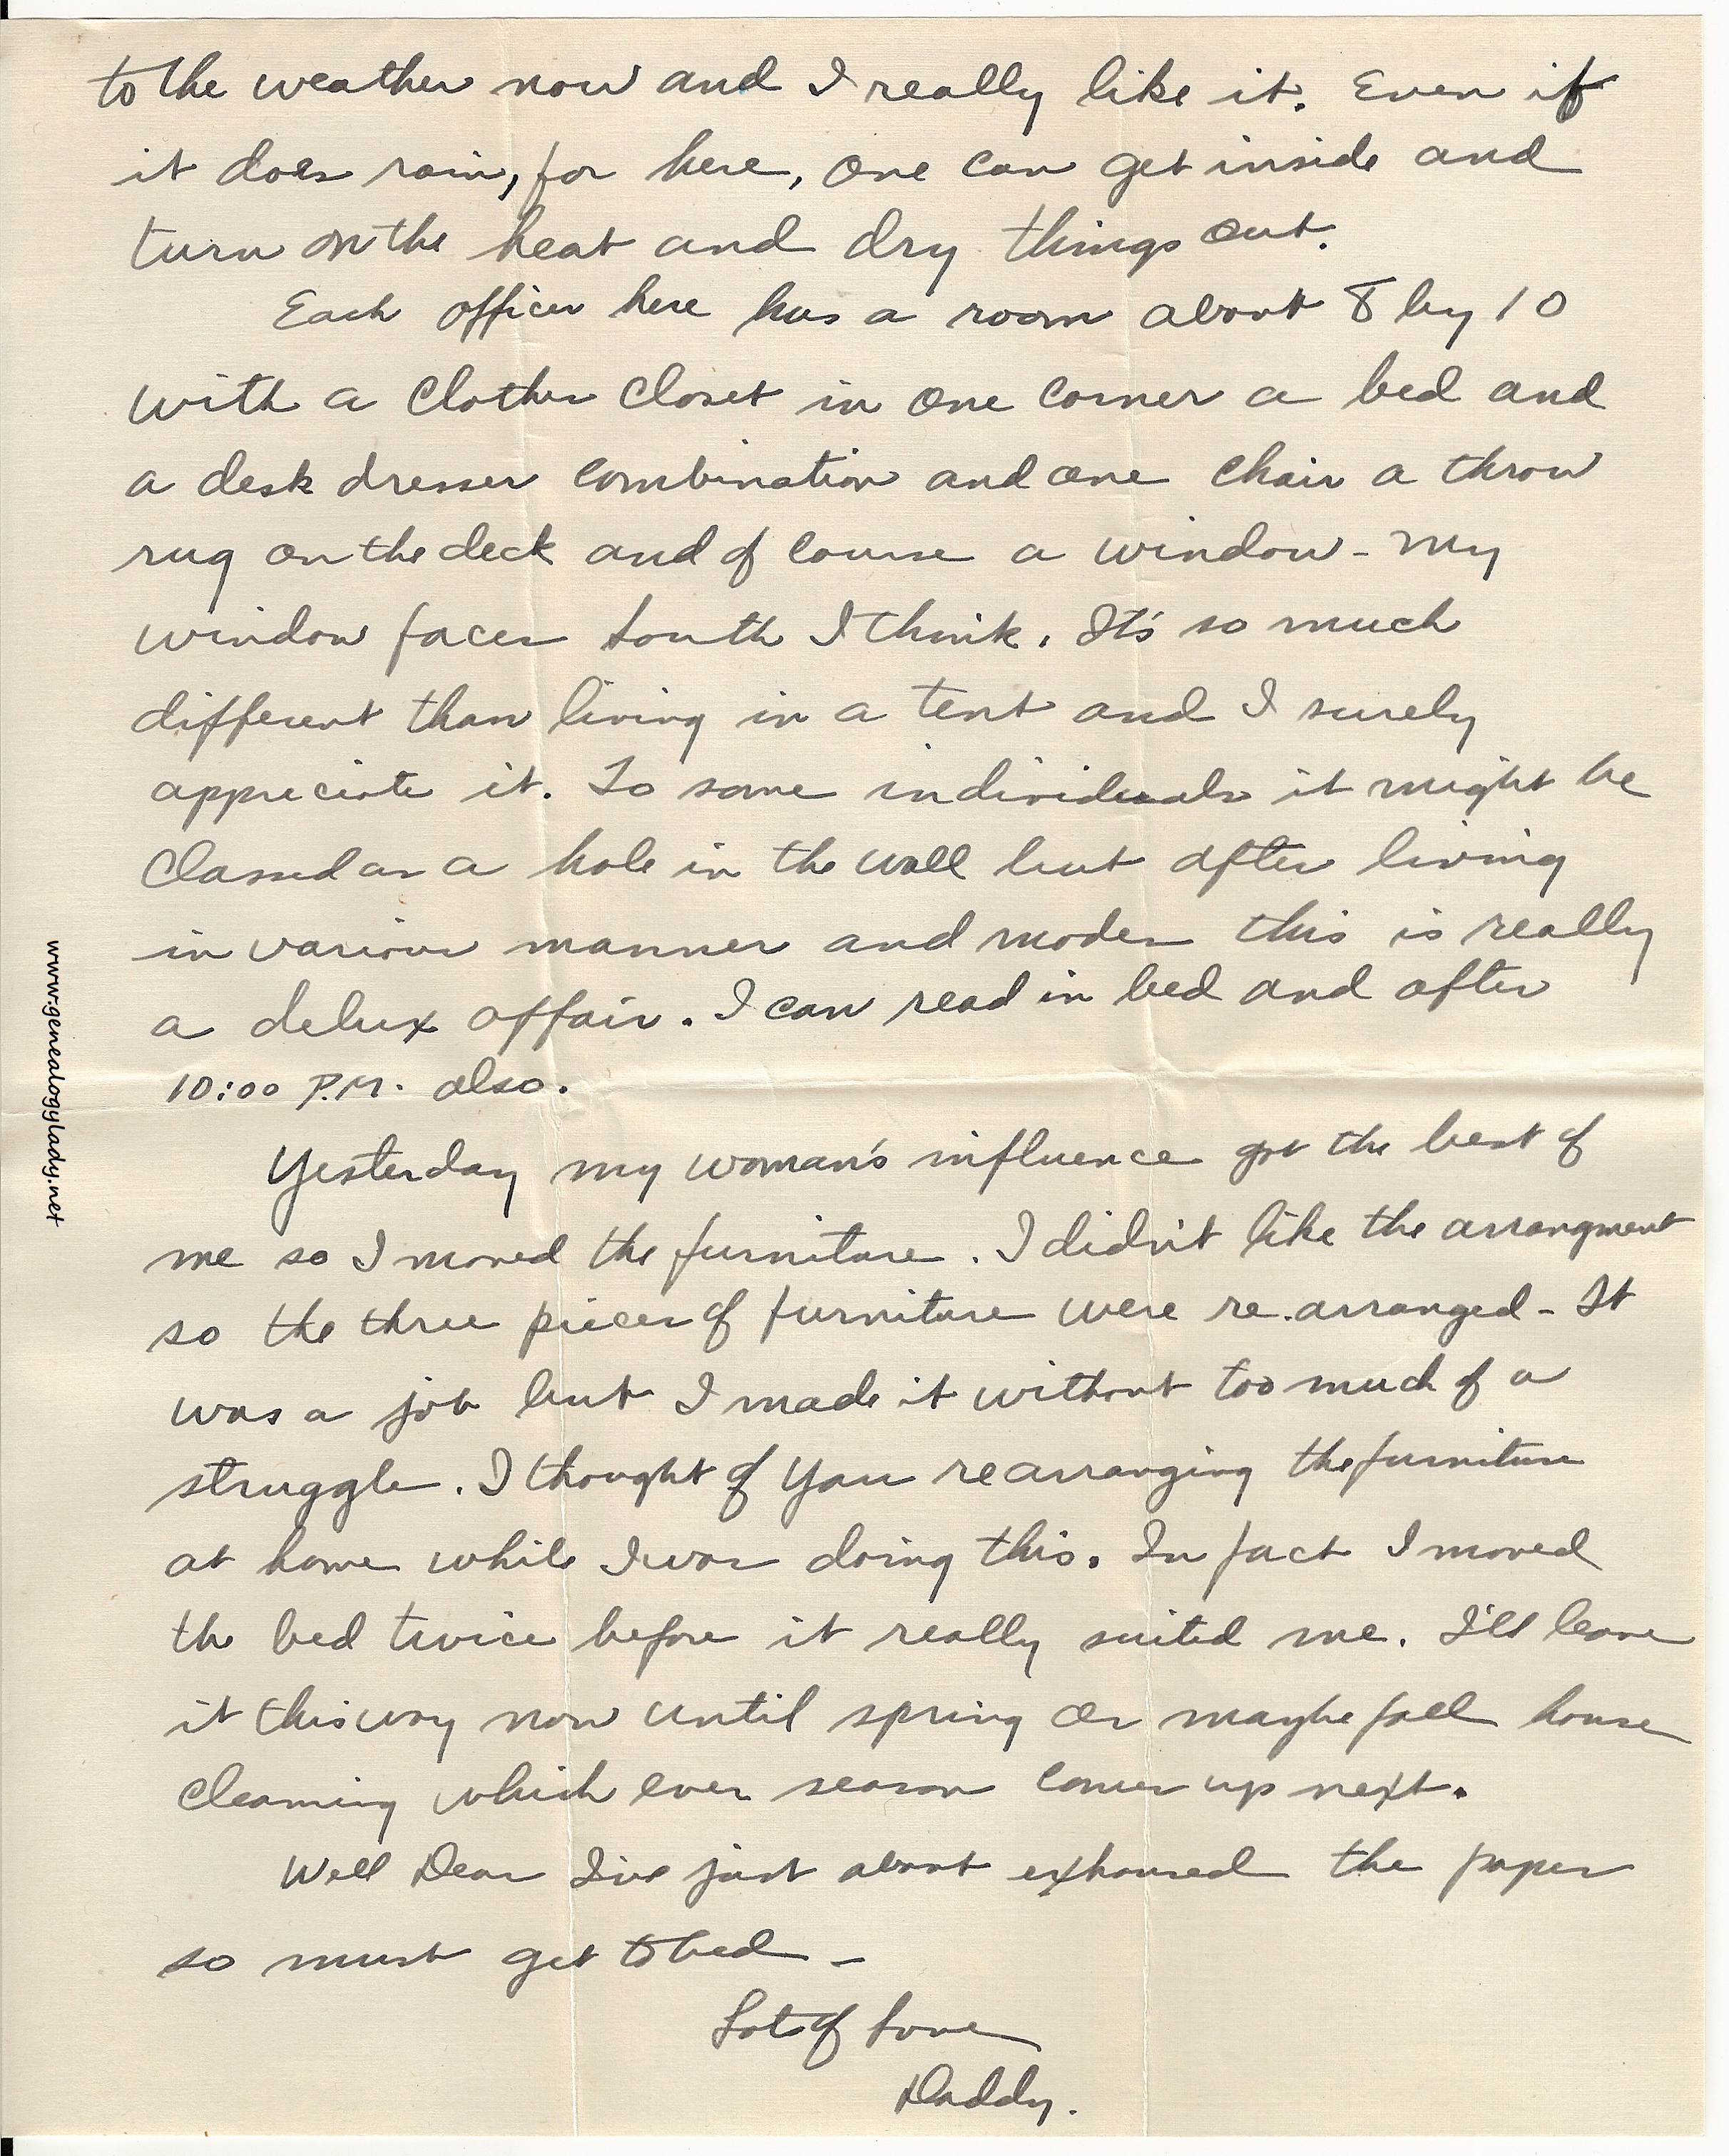 to the weather now and I really like it. Even if
it does rain, for here, one can get inside and
turn on the heat and dry things out.
Each officer here has a room about 8 by 10
with a clothes closet in one corner a bed and
a desk dresser combination and one chair a throw
rug on the deck and of course a window - my
window faces south I think. It's so much
different than living in a tent and I surely
appreciate it. To some individuals it might be
classed as a hole in the wall but after living
in various manner and modes this is really
a delux affair. I can read in bed and after
10:00 P.M. also.
Yesterday my woman's influence got the best of
me so I moved the furniture. I didn't like the arrangment
so the three pieces of furniture were re.arranged - It
was a job but I made it without too much of a
struggle. I thought of you rearranging the furniture
at home while I was doing this. In fact I moved
the bed twice before it really suited me. I'll leave
it this way now until spring or maybe fall house
cleaning which ever season comes up next.
Well Dear I've just about exhaused the paper
so must get to bed -
Lots of Love
Daddy.
www.genealogylady.net